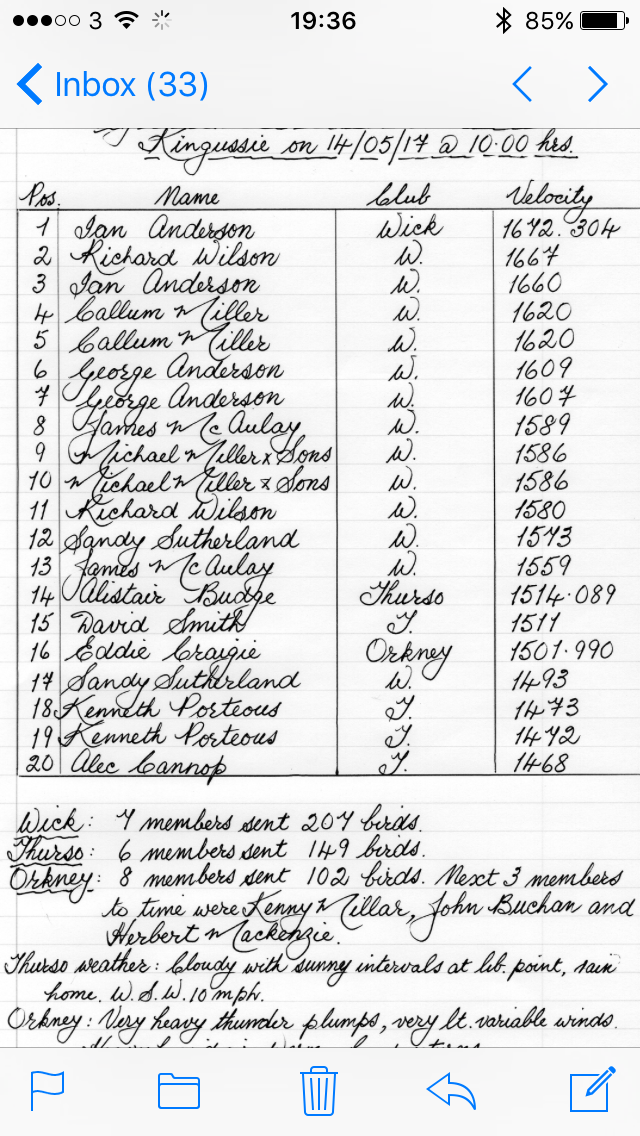 3 19:36 85%
Inbox (33)
Kingussie on 14/05/17 @ 10·00 hrs.
Pos. Name Club Velocity
1 Ian Anderson Wick 1672.304
2 Richard Wilson W. 1667
3 Ian Anderson W. 1660
4 Callum Miller W. 1620
5 Callum Miller W. 1620
6 George Anderson W. 1609
7 George Anderson W. 1607
8 James McAulay W. 1589
9 Michael Miller & Sons W. 1586
10 Michael Miller & Sons W. 1586
11 Richard Wilson W. 1580
12 Sandy Sutherland W. 1573
13 James McAulay W. 1559
14 Alistair Budge Thurso 1514·089
15 David Smith T. 1511
16 Eddie Craigie Orkney 1501·990
17 Sandy Sutherland W. 1493
18 Kenneth Porteous T. 1473
19 Kenneth Porteous T. 1472
20 Alec Cannop T. 1468
Wick: 7 members sent 207 birds.
Thurso: 6 members sent 149 birds.
Orkney: 8 members sent 102 birds. Next 3 members
to time were Kenny Millar, John Buchan and
Herbert Mackenzie.
Thurso weather: Cloudy with sunny intervals at lib. point, rain
home. W.S.W. 10 mph.
Orkney: Very heavy thunder plumps, very lt. variable winds.